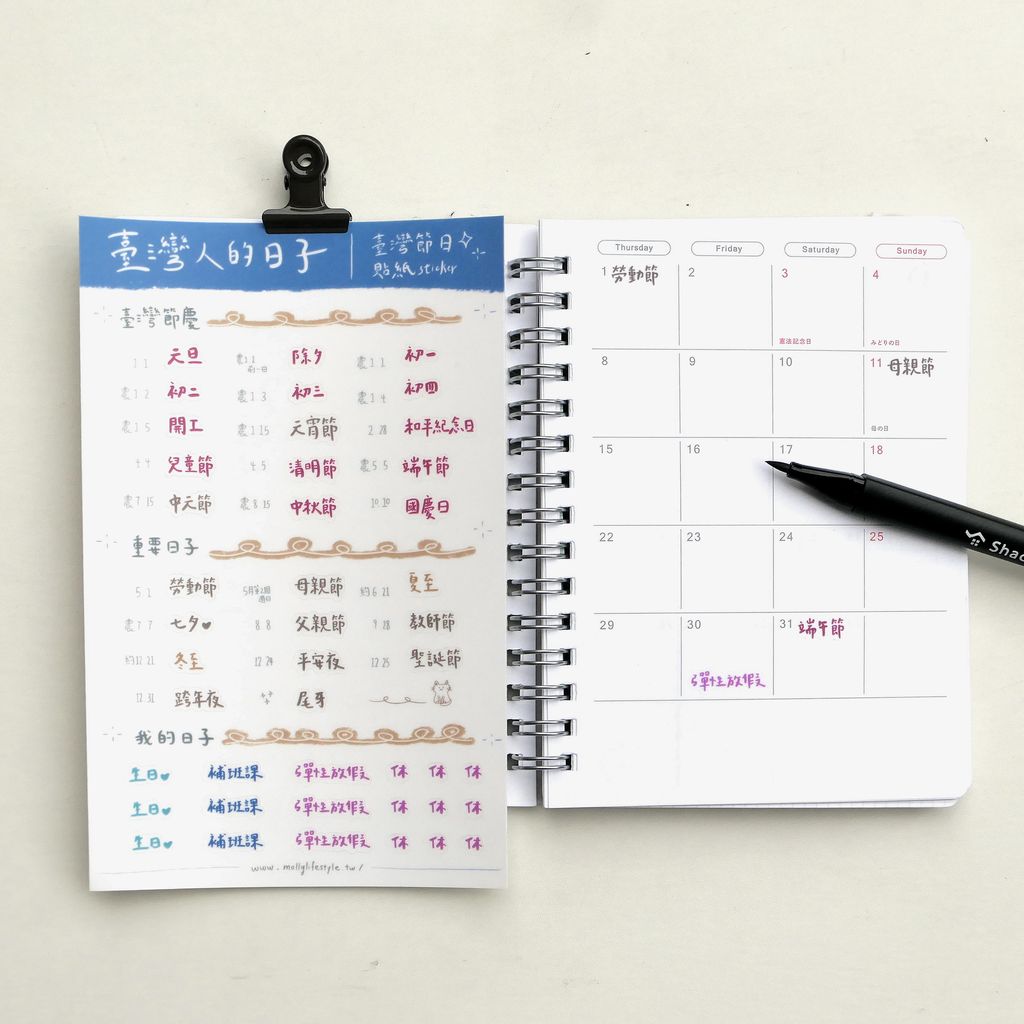 臺灣人的日子
臺灣節日
貼紙 sticker
臺灣節慶
1 1 元旦 農1 1 前一日 除夕 農1 1 初一
農1 2 初二 農1 3 初三 農1 4 初四
農1 5 開工 農1 15 元宵節 2 28 和平紀念日
4 4 兒童節 4 5 清明節 農5 5 端午節
農7 15 中元節 農8 15 中秋節 10 10 國慶日
重要日子
5 1 勞動節 5月第2個週日 母親節 約6 21 夏至
農7 7 七夕 8 8 父親節 9 28 教師節
約12 21 冬至 12 24 平安夜 12 25 聖誕節
12 31 跨年夜 尾牙
我的日子
生日 補班課 彈性放假 休 休 休
生日 補班課 彈性放假 休 休 休
生日 補班課 彈性放假 休 休 休
www.mollylifestyle.tw/
Thursday Friday Saturday Sunday
1 勞動節 2 3 4
憲法記念日 みどりの日
8 9 10 11 母親節
母の日
15 16 17 18
22 23 24 25
29 30 31 端午節
彈性放假